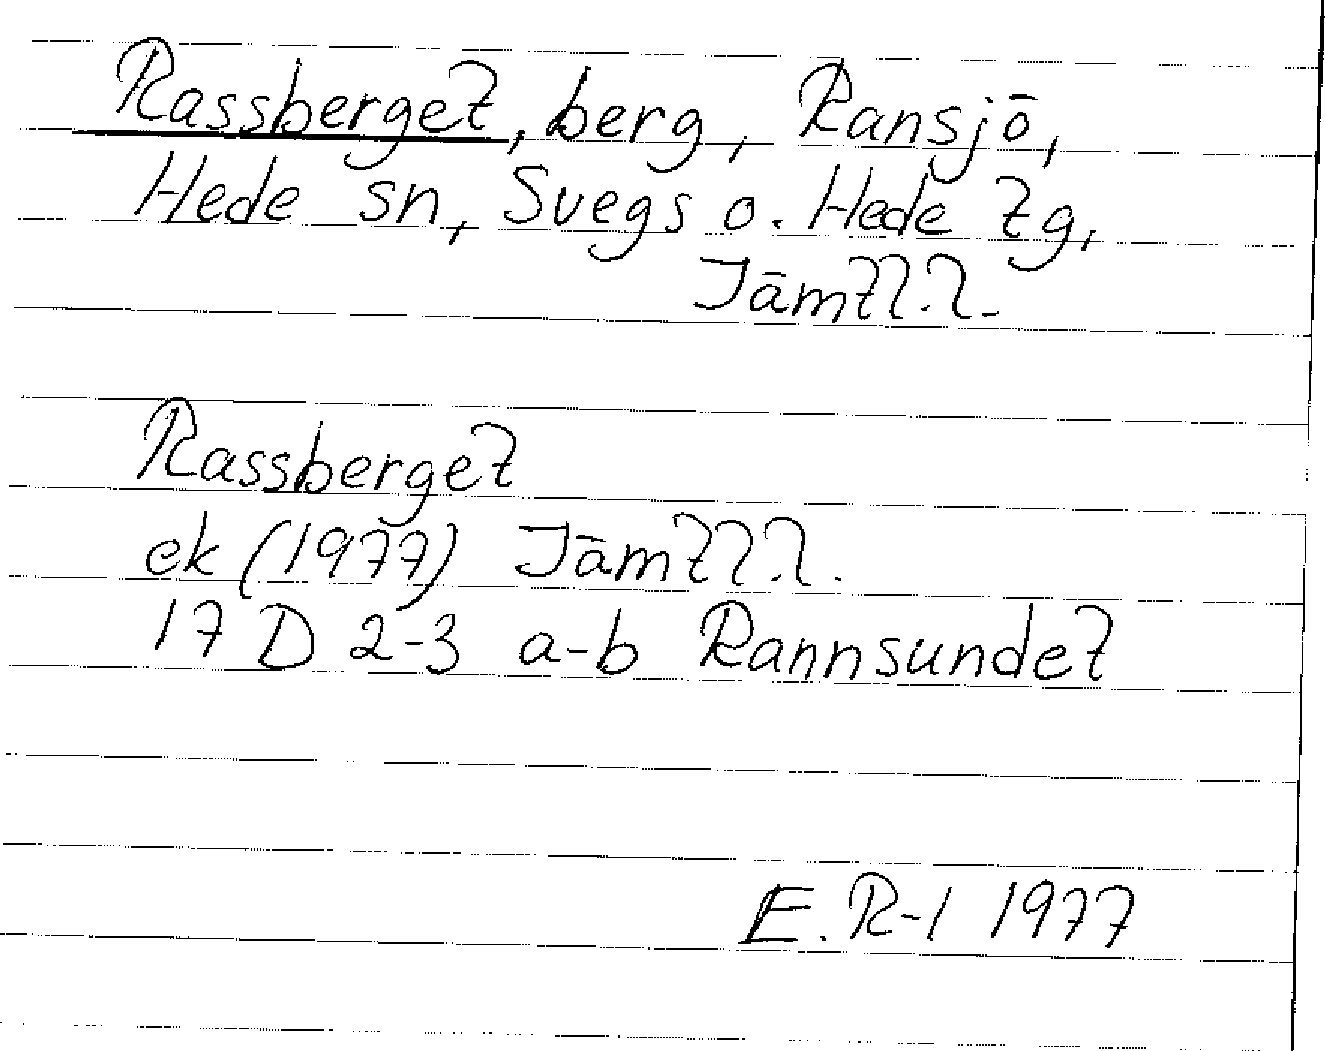 Rassberget, berg, Ransjö,
Hede sn, Svegs o. Hede tg,
Jämtl.l.
Rassberget
ek (1977) Jämtl.l.
17 D 2-3 a-b Rannsundet
E. R-l 1977